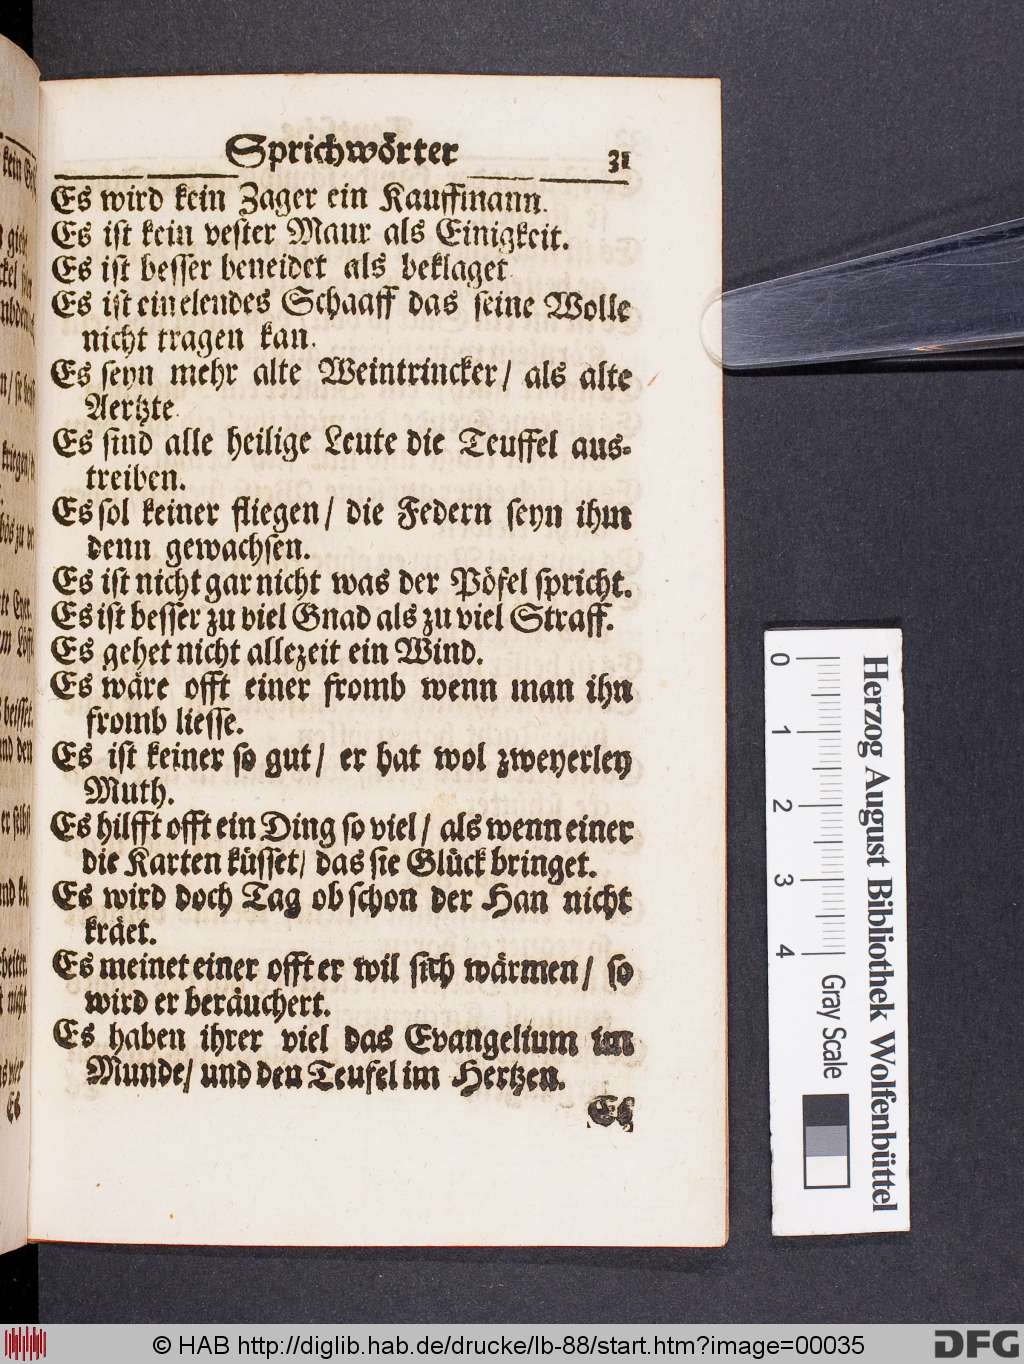 Sprichwörter 31
Es wird kein Zager ein Kauffmann.
Es ist kein vester Maur als Einigkeit.
Es ist besser beneidet als beklaget
Es ist ein elendes Schaaff das seine Wolle
nicht tragen kan.
Es seyn mehr alte Weintrincker / als alte
Aertzte.
Es sind alle heilige Leute die Teuffel aus-
treiben.
Es sol keiner fliegen / die Federn seyn ihm
denn gewachsen.
Es ist nicht gar nicht was der Pöfel spricht.
Es ist besser zu viel Gnad als zu viel Straff.
Es gehet nicht allezeit ein Wind.
Es wäre offt einer fromb wenn man ihn
fromb liesse.
Es ist keiner so gut / er hat wol zweyerley
Muth.
Es hilfft offt ein Ding so viel / als wenn einer
die Karten küsset / das sie Glück bringet.
Es wird doch Tag ob schon der Han nicht
kräet.
Es meinet einer offt er wil sich wärmen / so
wird er beräuchert.
Es haben ihrer viel das Evangelium im
Munde / und den Teufel im Hertzen.
Es
0 1 2 3 4 Gray Scale
Herzog August Bibliothek Wolfenbüttel
© HAB http://diglib.hab.de/drucke/lb-88/start.htm?image=00035
DFG